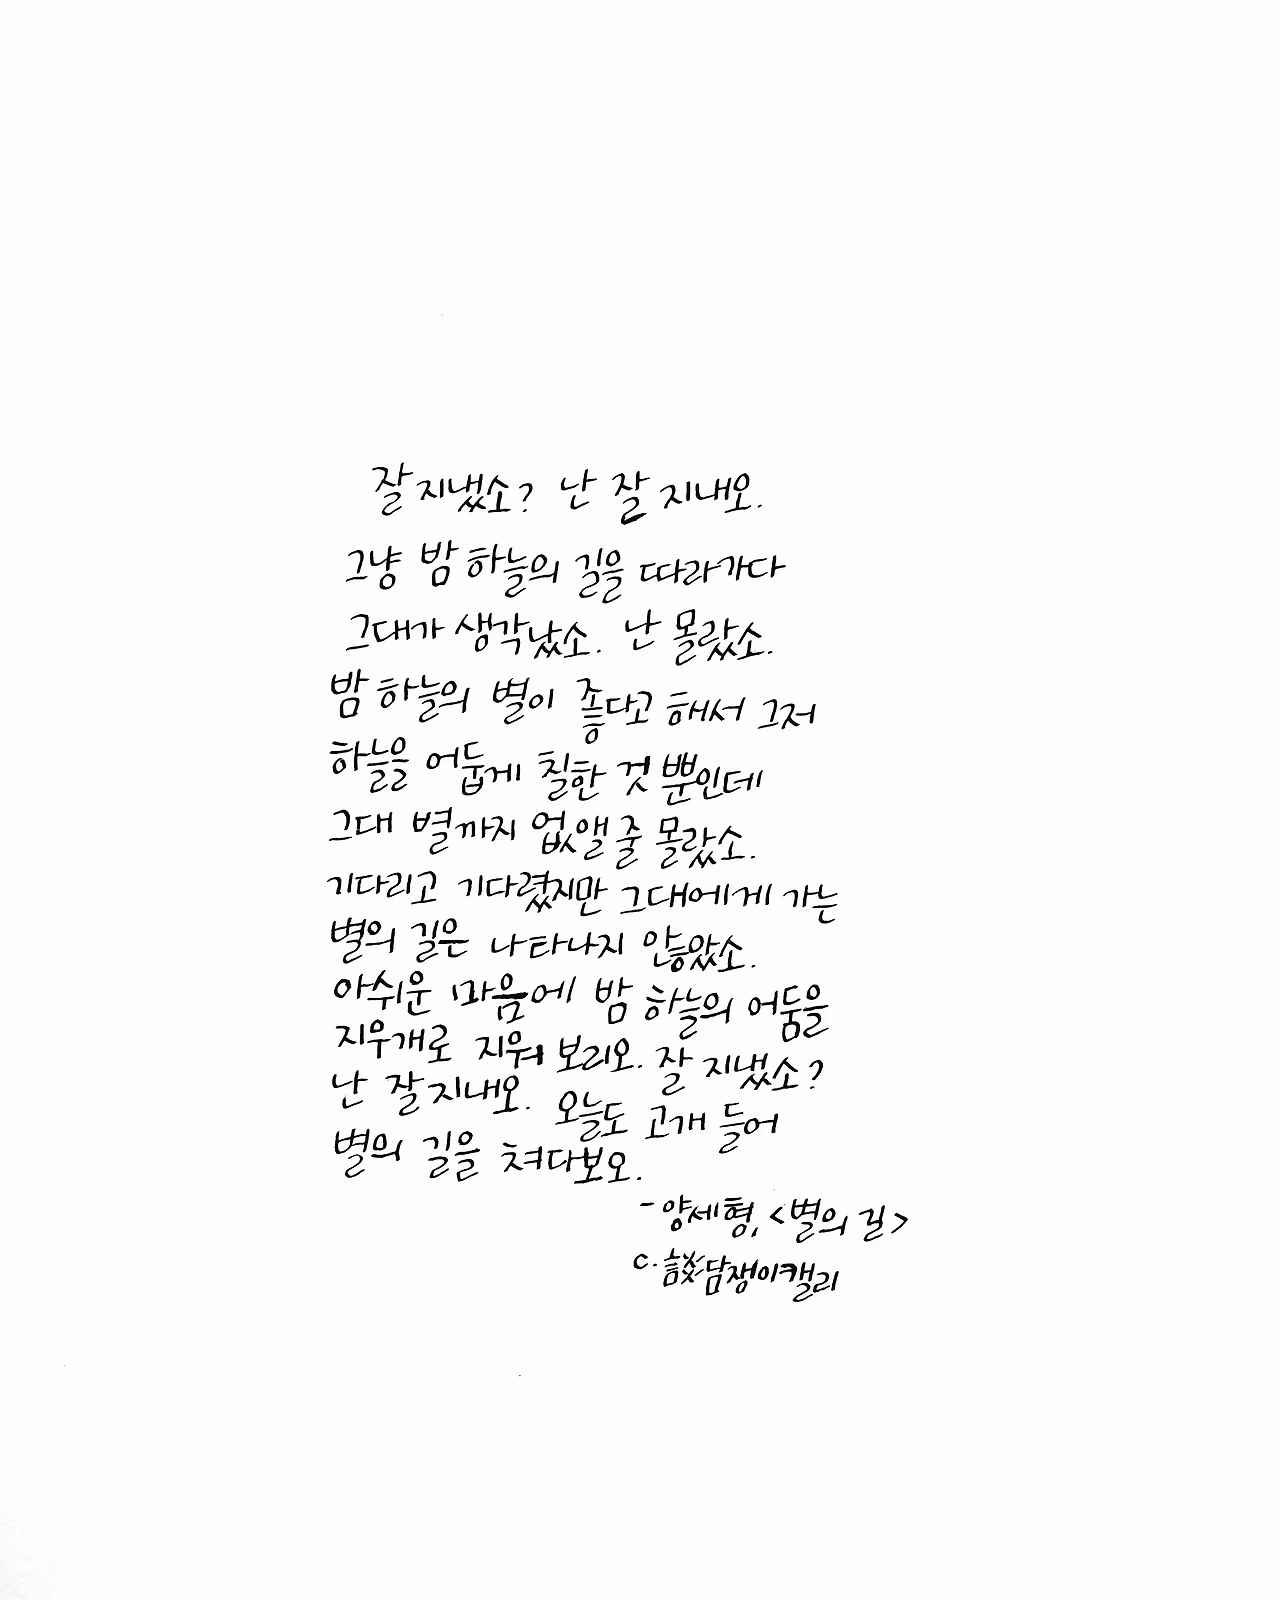 잘 지냈소? 난 잘 지내오.
그냥 밤 하늘의 길을 따라가다
그대가 생각났소. 난 몰랐소.
밤 하늘의 별이 좋다고 해서 그저
하늘을 어둡게 칠한 것 뿐인데
그대 별까지 없앨 줄 몰랐소.
기다리고 기다렸지만 그대에게 가는
별의 길은 나타나지 않았소.
아쉬운 마음에 밤 하늘의 어둠을
지우개로 지워 보리오. 잘 지냈소?
난 잘 지내오. 오늘도 고개 들어
별의 길을 쳐다보오.
- 양세형, <별의 길>
c. 談담쟁이캘리